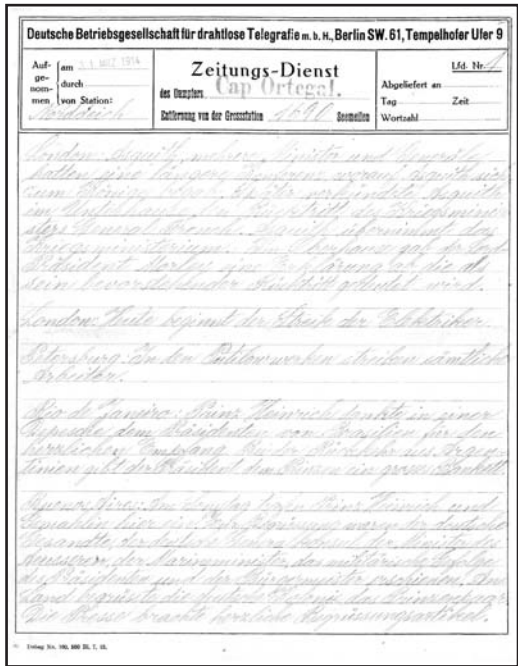 Deutsche Betriebsgesellschaft für drahtlose Telegrafie m. b. H., Berlin SW. 61, Tempelhofer Ufer 9
Auf-
ge-
nom-
men
am 31 MRZ 1914
durch
von Station:
Norddeich
Zeitungs-Dienst
des Dampfers Cap Ortegal.
Entfernung von der Grossstation 1690 Seemeilen
Lfd. Nr. 1
Abgeliefert an
Tag Zeit
Wortzahl
London: Asquith, mehrere Minister und Generäle
hatten eine längere Konferenz worauf Asquith sich
zum Könige begab. Später verkündete Asquith
im Unterhause den Rücktritt des Kriegsmini-
sters General French. Asquith übernimmt das
Kriegsministerium. Im Oberhause gab der Lord
Präsident Morley eine Erklärung ab die als
sein bevorstehender Rücktritt gedeutet wird.
London: Heute beginnt der Streik der Elektriker.
Petersburg: In den Putilowwerken streiken sämtliche
Arbeiter.
Rio de Janeiro: Prinz Heinrich dankte in einer
Depesche dem Präsidenten von Brasilien für den
herzlichen Empfang. Bei der Rückkehr aus Argen-
tinien gibt der Präsident dem Prinzen ein grosses Bankett.
Buenos Aires: Am Prinz Heinrich und
Gemahlin hier ein. Zur Begrüssung waren der deutsche
Gesandte, der deutsche General Konsul der Minister des
Aeusseren, der Marineminister, das militärische Gefolge
des Präsidenten und der Bürgermeister erschienen. Am
Land begrüsste die deutsche Kolonie das Prinzenpaar.
Die Presse brachte herzliche Begrüssungsartikel.
Debeg No. 100. 500 III. 7. 13.